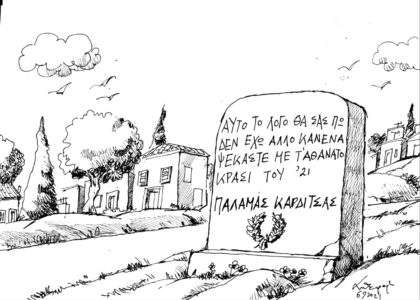 ΑΥΤΟ ΤΟ ΛΟΓΟ ΘΑ ΣΑΣ ΠΩ
ΔΕΝ ΕΧΩ ΑΛΛΟ ΚΑΝΕΝΑ
ΨΕΚΑΣΤΕ ΜΕ Τ'ΑΘΑΝΑΤΟ
ΚΡΑΣΙ ΤΟΥ '21
ΠΑΛΑΜΑΣ ΚΑΡΔΙΤΣΑΣ